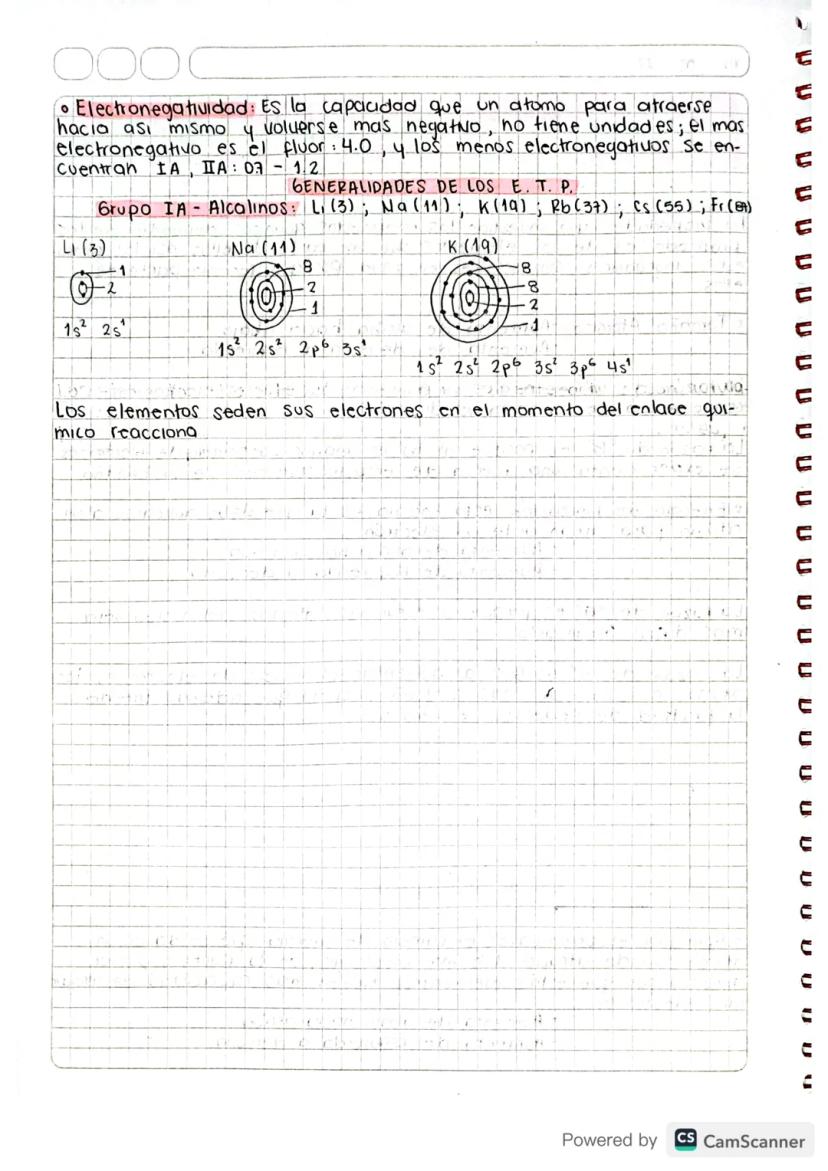 ° Electronegatividad: Es la capacidad que un atomo para atraerse
hacia asi mismo y volverse mas negativo, no tiene unidades; el mas
electronegativo es el fluor: 4.0, y los menos electronegativos se en-
cuentran IA, IIA: 07 - 1.2
GENERALIDADES DE LOS E. T. P.
Grupo IA - Alcalinos: Li(3); Na(11); K(19); Rb(37); Cs(55); Fr(87)
Li(3) Na(11) K(19)
1
2
8
2
1
8
8
2
1
1s² 2s¹
1s² 2s² 2p⁶ 3s¹
1s² 2s² 2p⁶ 3s² 3p⁶ 4s¹
Los elementos seden sus electrones en el momento del enlace qui-
mico reacciona
Powered by CS CamScanner